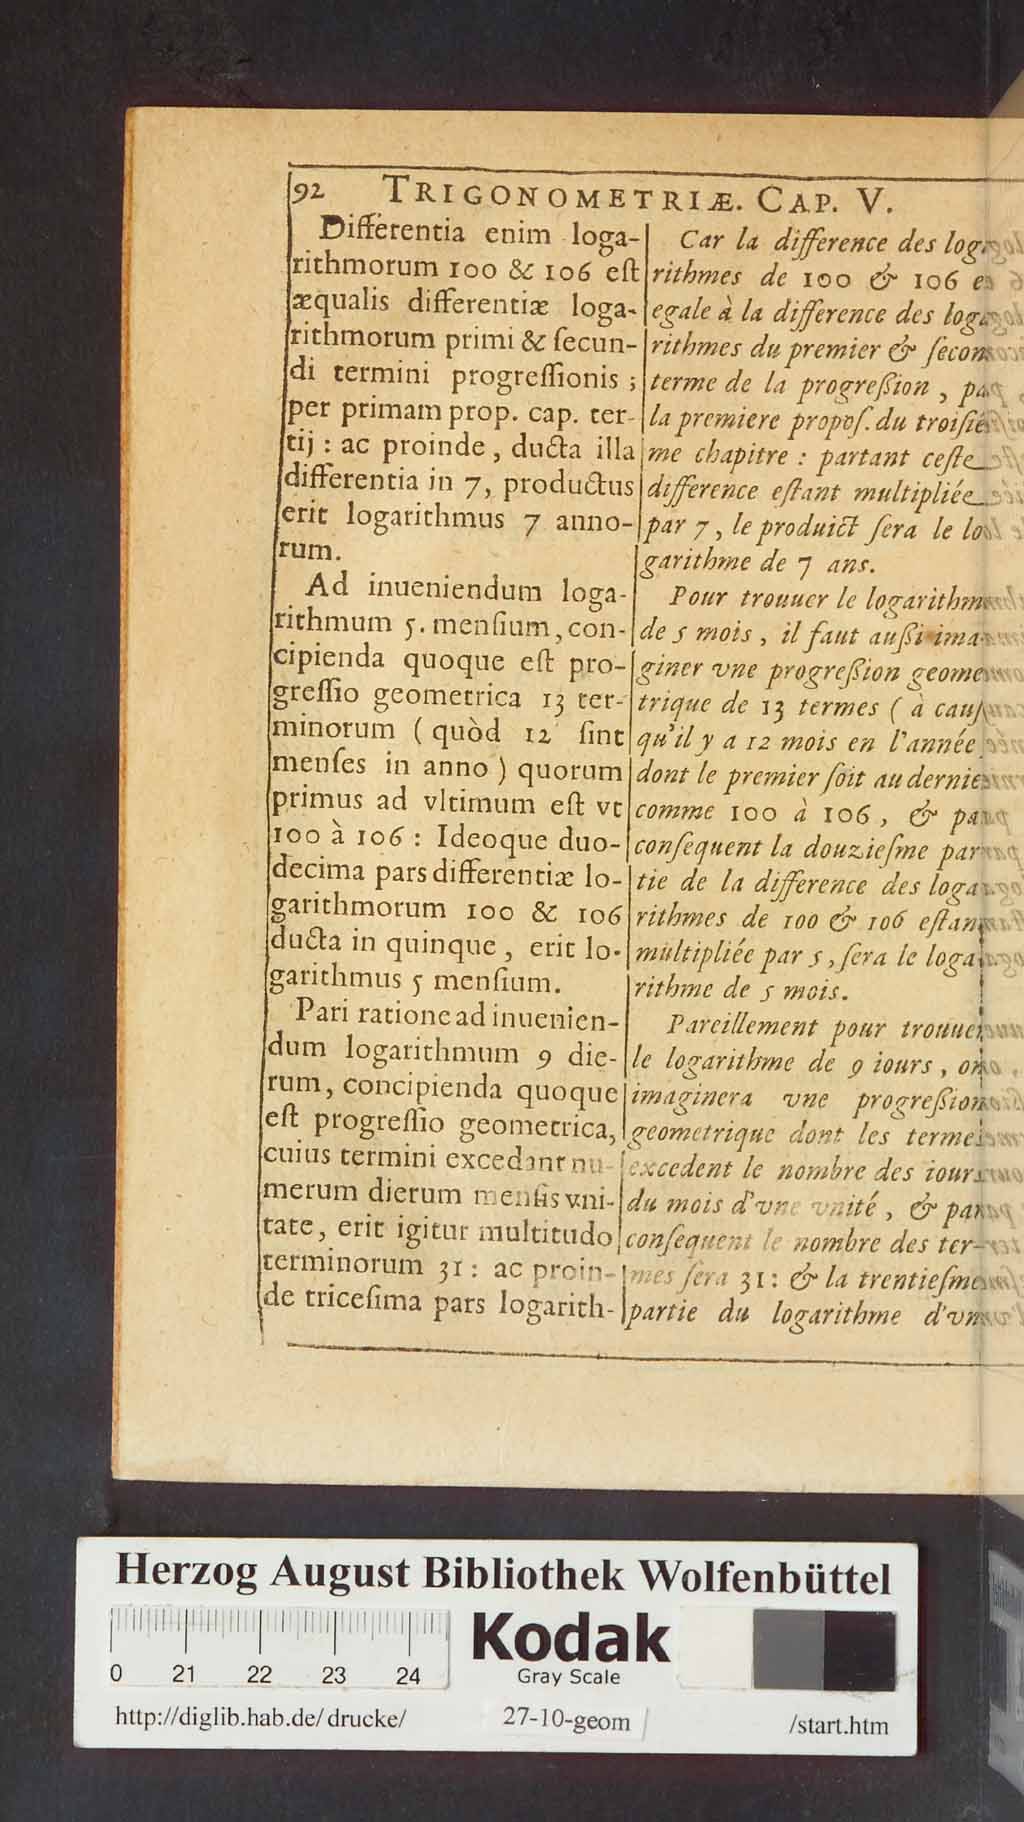 92 TRIGONOMETRIÆ. CAP. V.
Differentia enim loga-
rithmorum 100 & 106 eſt
æqualis differentiæ loga-
rithmorum primi & ſecun-
di termini progreſſionis ;
per primam prop. cap. ter-
tij : ac proinde , ducta illa
differentia in 7, productus
erit logarithmus 7 anno-
rum.
Ad inueniendum loga-
rithmum 5. menſium, con-
cipienda quoque eſt pro-
greſſio geometrica 13 ter-
minorum ( quòd 12 ſint
menſes in anno ) quorum
primus ad vltimum eſt vt
100 à 106 : Ideoque duo-
decima pars differentiæ lo-
garithmorum 100 & 106
ducta in quinque , erit lo-
garithmus 5 menſium.
Pari ratione ad inuenien-
dum logarithmum 9 die-
rum, concipienda quoque
eſt progreſſio geometrica,
cuius termini excedant nu-
merum dierum menſis vni-
tate, erit igitur multitudo
terminorum 31 : ac proin-
de triceſima pars logarith-
Car la difference des loga-
rithmes de 100 & 106 
egale à la difference des loga-
rithmes du premier & ſecon
terme de la progreßion , pa
la premiere propoſ. du troiſié-
me chapitre : partant ceſte
difference eſtant multipliée
par 7 , le produict ſera le lo
garithme de 7 ans.
Pour trouuer le logarithm
de 5 mois , il faut außi ima-
giner vne progreßion geome
trique de 13 termes ( à cauſ
qu'il y a 12 mois en l'année
dont le premier ſoit au dernie
comme 100 à 106 , & pa
conſequent la douzieſme par
tie de la difference des loga
rithmes de 100 & 106 eſtan
multipliée par 5 , ſera le loga
rithme de 5 mois.
Pareillement pour trouuer
le logarithme de 9 iours , on
imaginera vne progreßion
geometrique dont les terme
excedent le nombre des iours
du mois d'vne vnité , & par
conſequent le nombre des ter-
mes ſera 31 : & la trentieſme
partie du logarithme d'vn
Herzog August Bibliothek Wolfenbüttel
Kodak
Gray Scale
0 21 22 23 24
http://diglib.hab.de/drucke/ 27-10-geom /start.htm